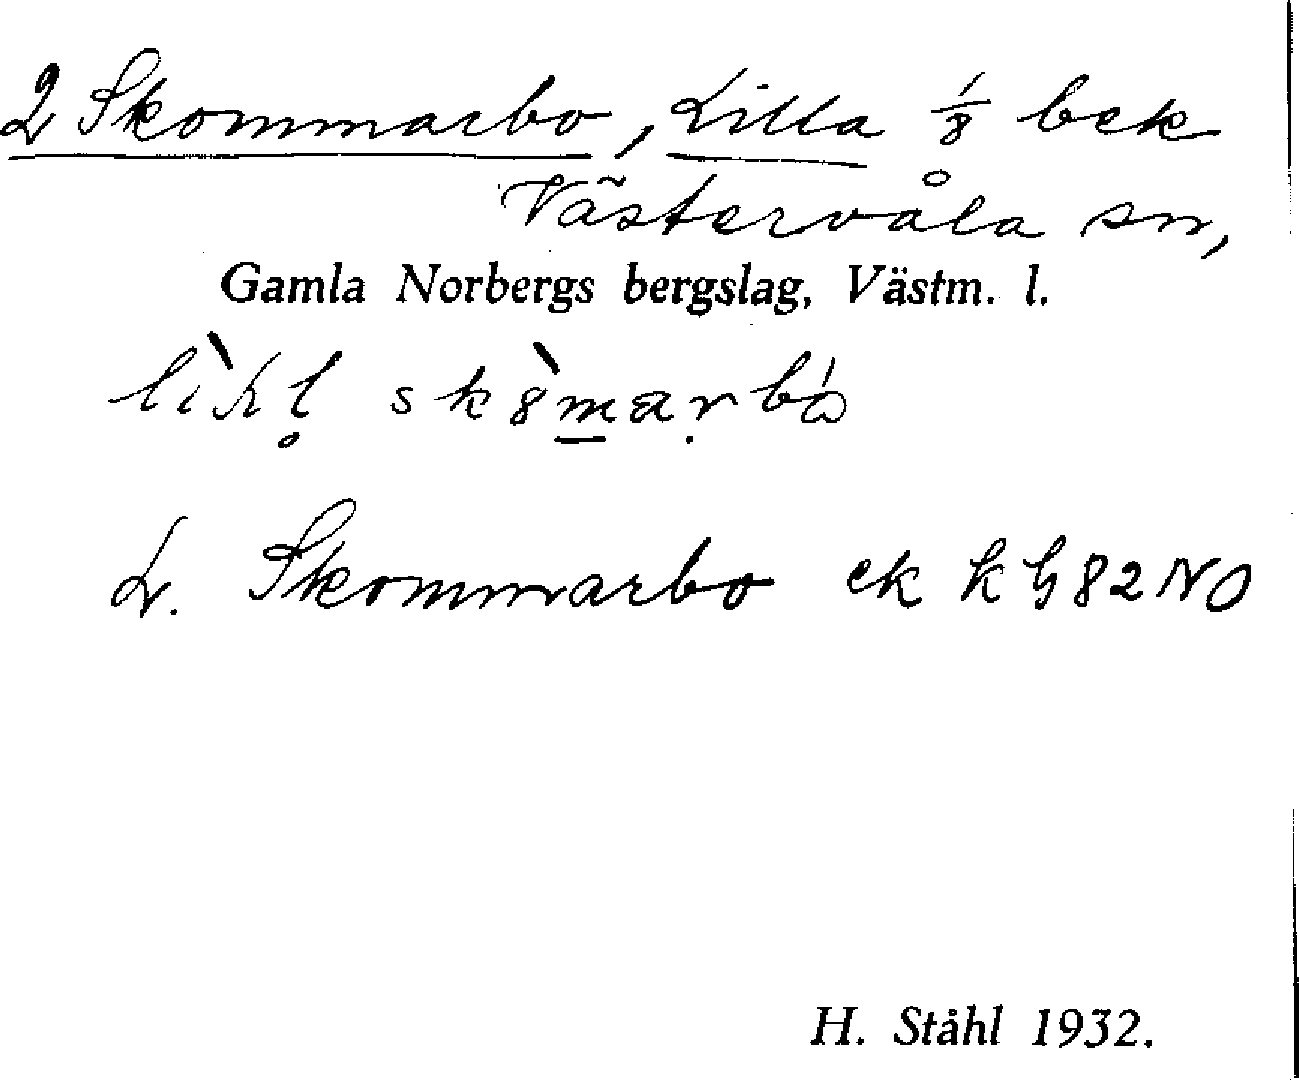 2 Skommarbo, Lilla 1/8 bek
Västervåla sn,
Gamla Norbergs bergslag, Västm. l.
L. Skommarbo ek k h 82 NO
H. Ståhl 1932.